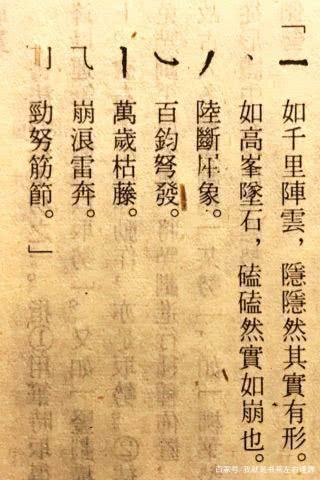 「一 如千里陣雲，隱隱然其實有形。
丶 如高峯墜石，磕磕然實如崩也。
丿 陸斷犀象。
百鈞弩發。
丨 萬歲枯藤。
崩浪雷奔。
勁努筋節。」
百家号/我就是书苑左右逢源